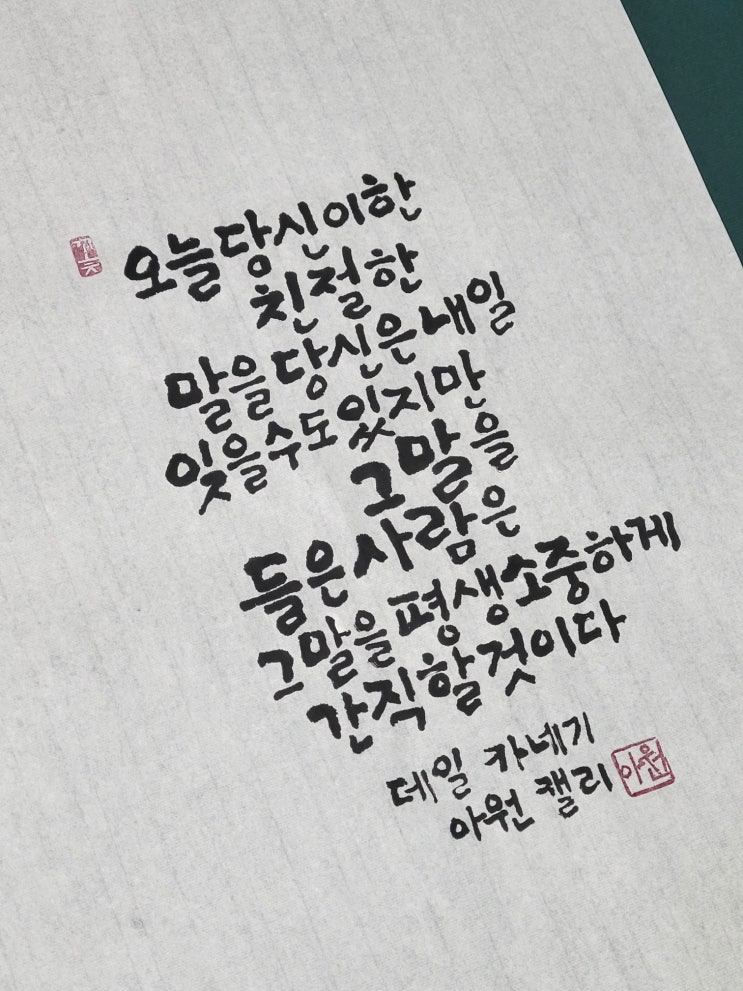 오늘 당신이 한
친절한
말을 당신은 내일
잊을 수도 있지만
그 말을
들은 사람은
그 말을 평생 소중하게
간직할 것이다
데일 카네기
아원 캘리
아원